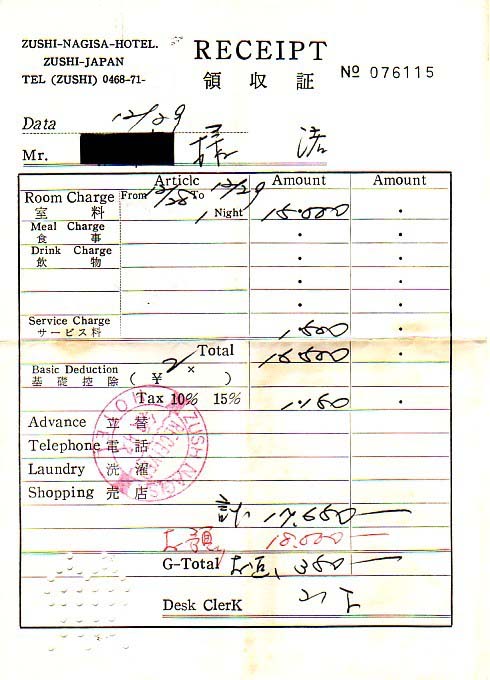 ZUSHI-NAGISA-HOTEL. RECEIPT
ZUSHI-JAPAN
TEL (ZUSHI) 0468-71- 領収証 № 076115
Data 12/29
Mr. 様 済
Article Amount Amount
Room Charge From 12/28 To 12/29
室料 1 Night 15.000
Meal Charge
食事
Drink Charge
飲物
Service Charge
サービス料 1.500
Total 16.500
Basic Deduction 2 ×
基礎控除 ( ¥ )
Tax 10% 15% 1.150
Advance 立替
Telephone 電話
Laundry 洗濯
Shopping 売店
計 17.650
お預り 18.000
G-Total お 350
Desk ClerK